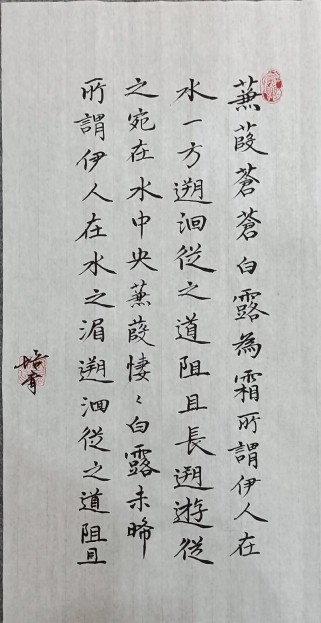 蒹葭蒼蒼白露為霜所謂伊人在
水一方遡洄從之道阻且長遡遊從
之宛在水中央蒹葭悽〻白露未晞
所謂伊人在水之湄遡洄從之道阻且
培育